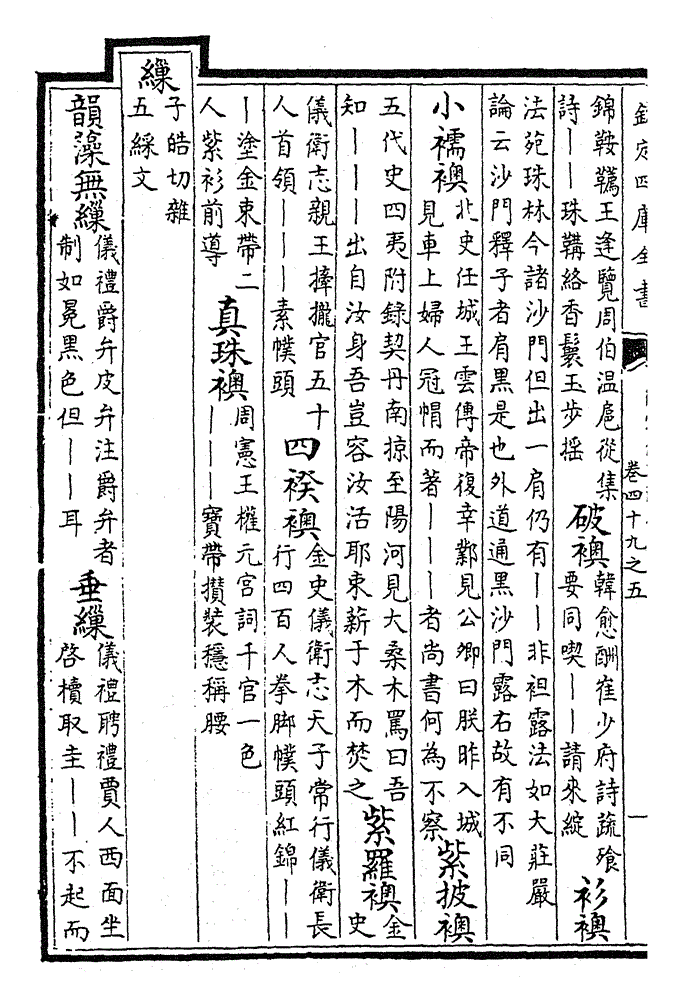 欽定四庫全書
卷四十九之五
一
錦鞍韉王逢覽周伯温扈從集
詩——珠鞲絡香鬟玉步摇
破襖
韓愈酬崔少府詩蔬飱
要同喫——請來綻
衫襖
法苑珠林今諸沙門但出一肩仍有——非袒露法如大莊嚴
論云沙門釋子者肩黑是也外道通黑沙門露右故有不同
小襦襖
北史任城王雲傳帝復幸鄴見公卿曰朕昨入城
見車上婦人冠帽而著———者尚書何為不察
紫披襖
五代史四夷附錄契丹南掠至陽河見大桑木罵曰吾
知———出自汝身吾豈容汝活耶束薪于木而焚之
紫羅襖
金
史
儀衛志親王捧攏官五十
人首領———素幞頭
四䙆襖
金史儀衛志天子常行儀衛長
行四百人拳脚幞頭紅錦——
—塗金束帶二
人紫衫前導
真珠襖
周憲王權元宫詞千官一色
———寶帶攢裝穩稱腰
繅
子皓切雜
五綵文
韻藻無繅
儀禮爵弁皮弁注爵弁者
制如冕黑色但——耳
垂繅
儀禮聘禮賈人西面坐
啓櫝取圭——不起而